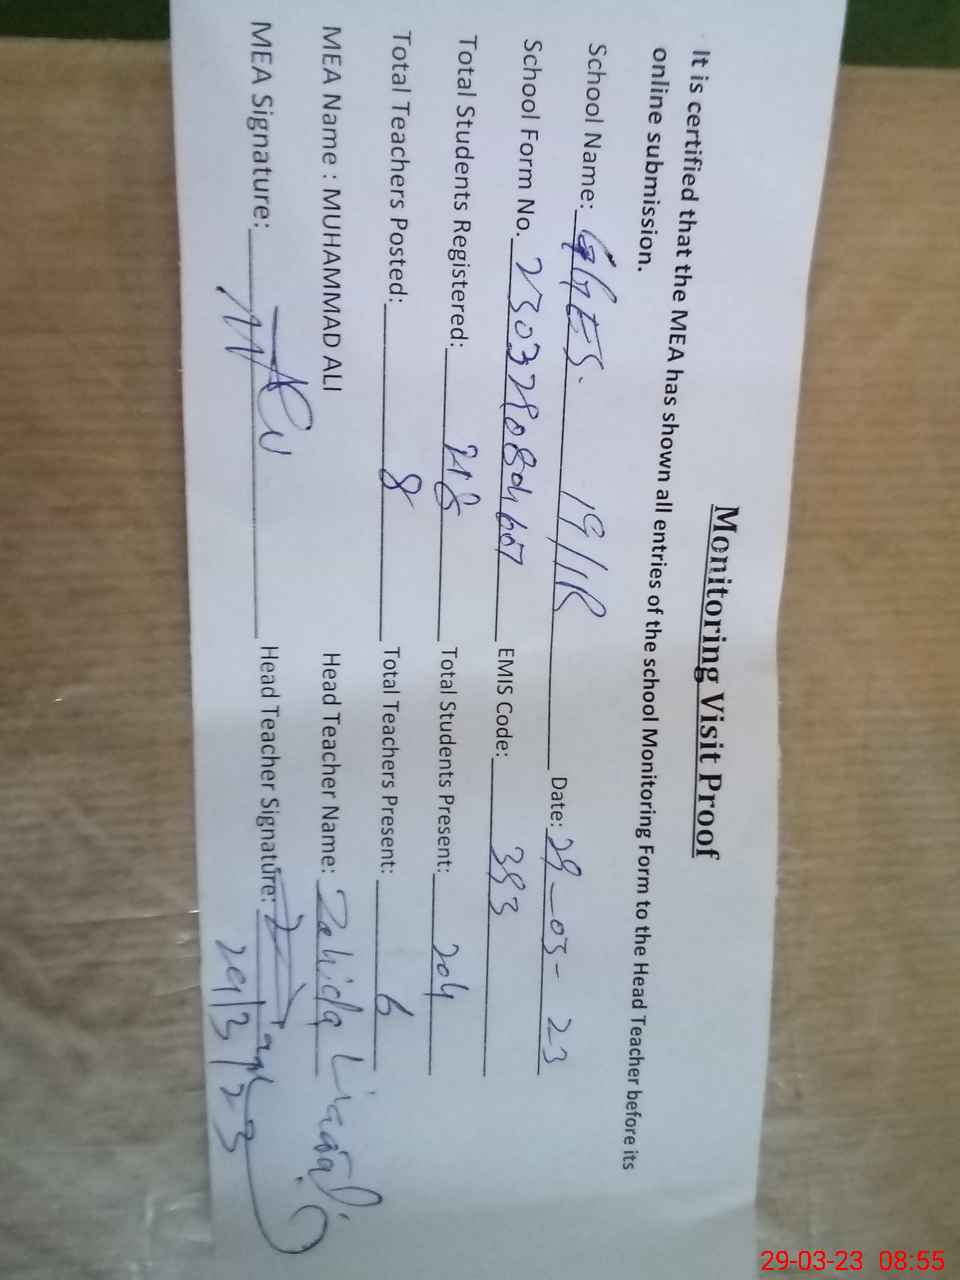 Monitoring Visit Proof
It is certified that the MEA has shown all entries of the school Monitoring Form to the Head Teacher before its
online submission.
School Name: GGES. 19/1R Date: 29-03-23
School Form No. EMIS Code: 393
Total Students Registered: 218 Total Students Present: 204
Total Teachers Posted: 8 Total Teachers Present: 6
MEA Name : MUHAMMAD ALI Head Teacher Name: Zahida
MEA Signature: Head Teacher Signature:
29/3/23
29-03-23 08:55